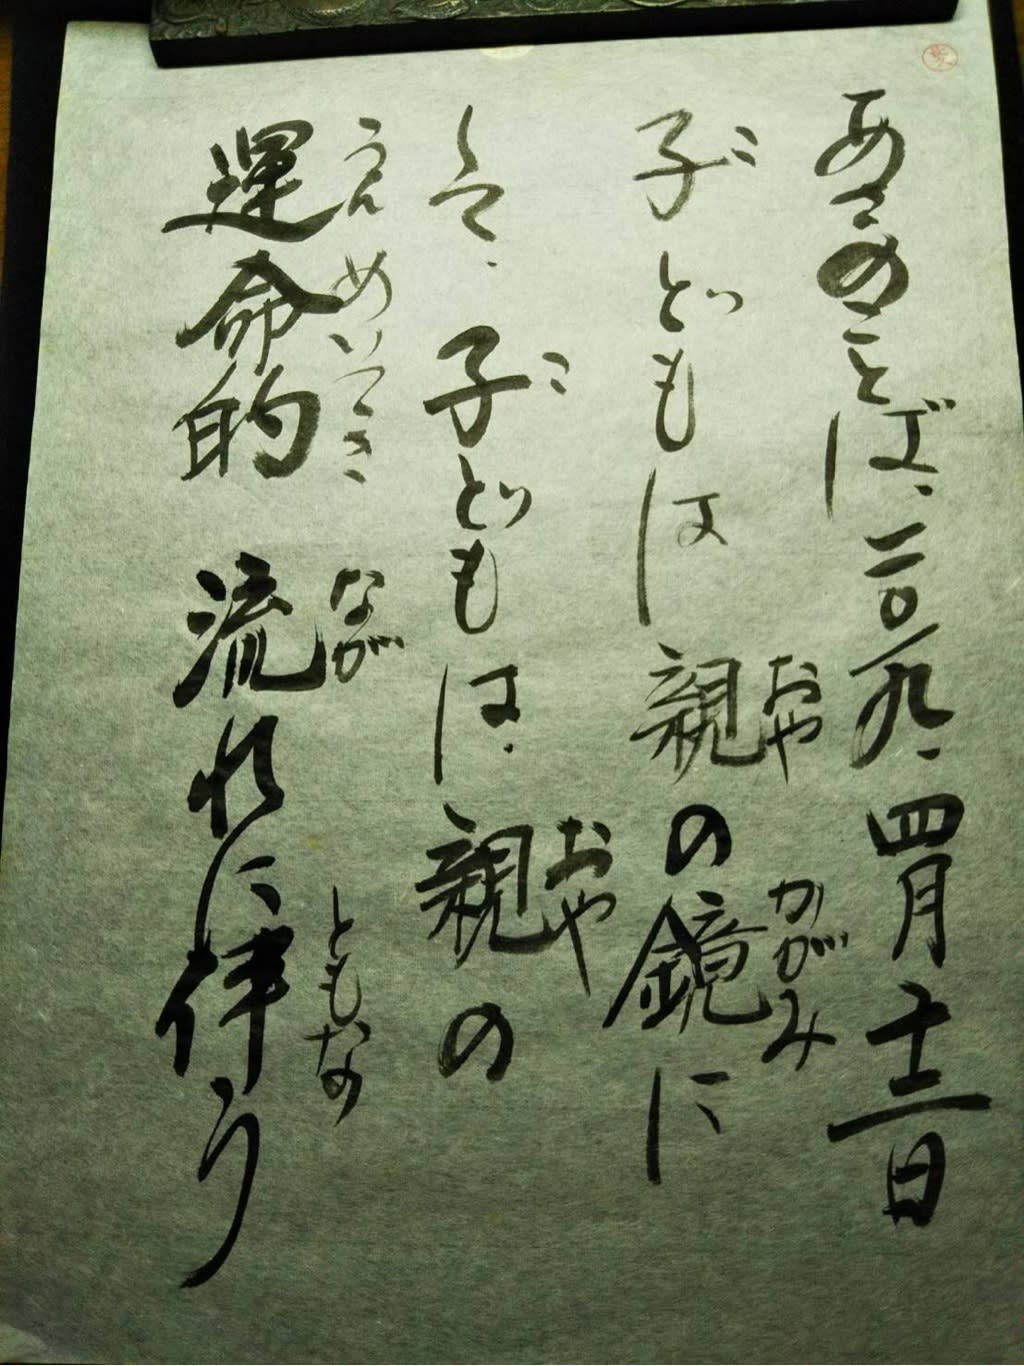 あさのことば、二〇一九、四月十二日
こ おや かがみ
子どもは親の鏡に
こ おや
して、子どもは、親の
うんめいてき なが ともな
運命的 流れに伴う